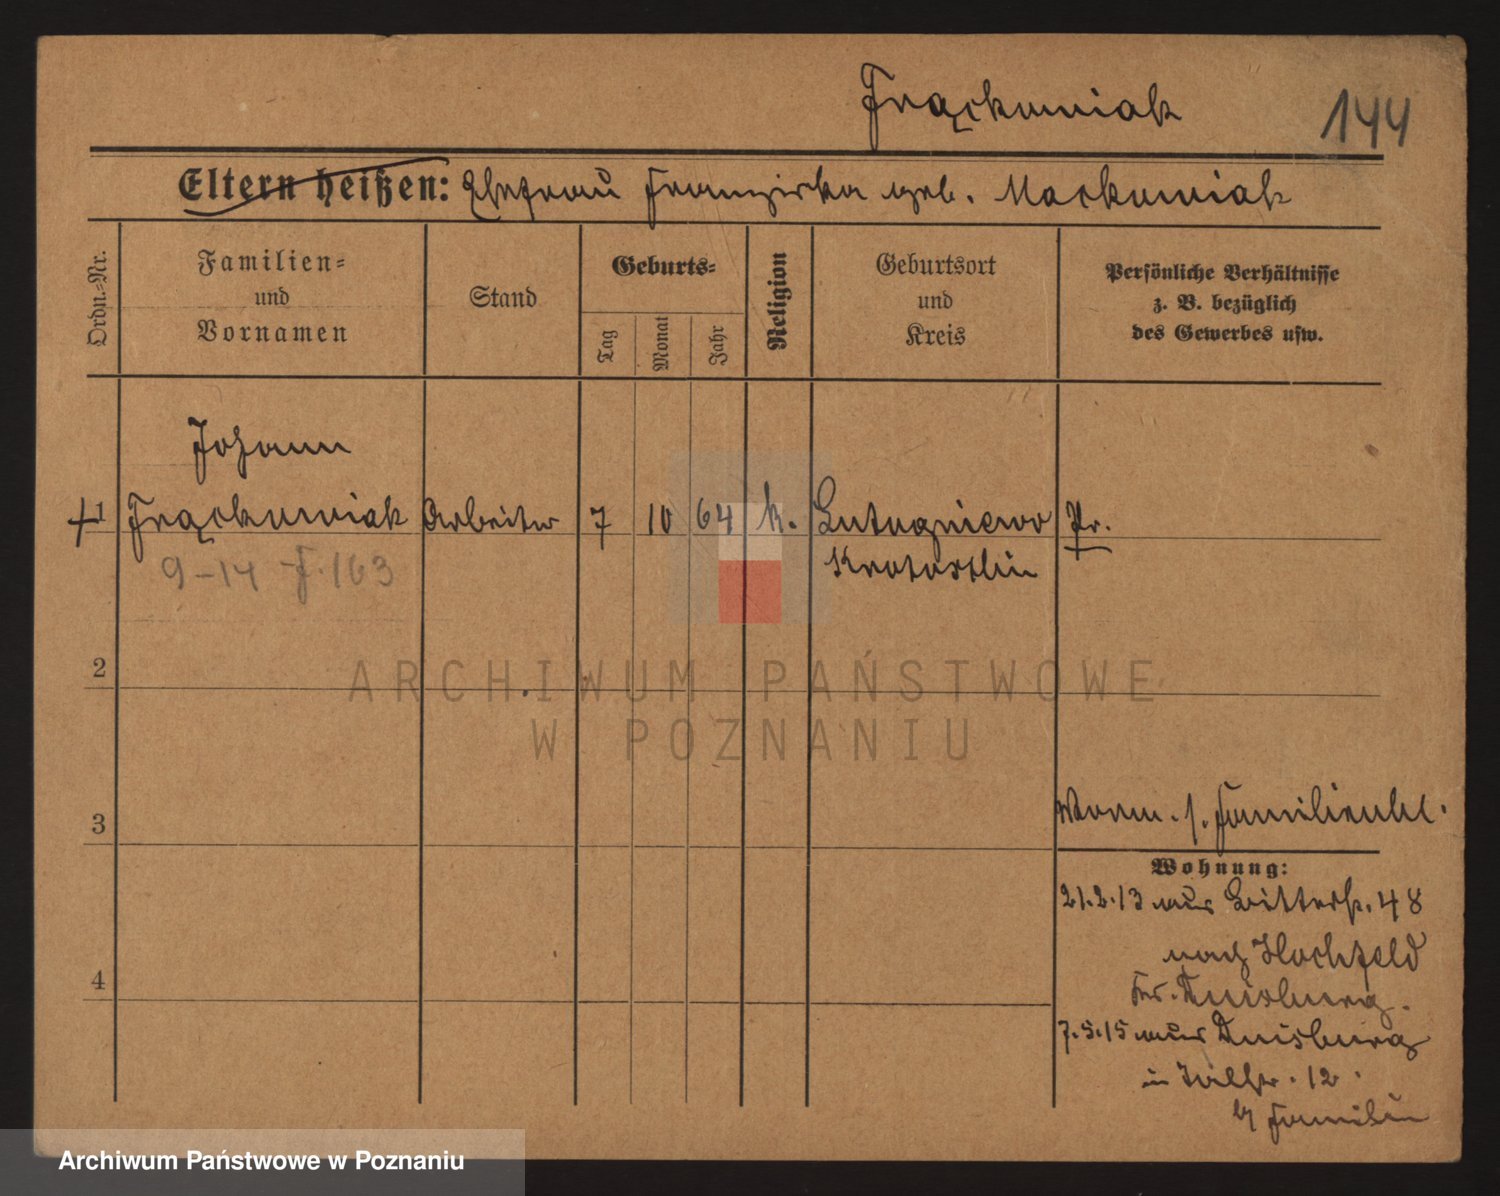 Frąckowiak 144
Eltern heißen: Ehefrau Franziska geb. Maćkowiak
Ordn.-Nr.
Familien-
und
Vornamen
Stand
Geburts-
Tag
Monat
Jahr
Religion
Geburtsort
und
Kreis
Persönliche Verhältnisse
z. B. bezüglich
des Gewerbes usw.
Johann
1 Frąckowiak Arbeiter 7 10 64 k. Lutogniewo Pr.
Krotoschin
9-14 F. 163
2
3
4
Worm. s. Familienbl.
Wohnung:
21.2.13 aus 48
nach Hochfeld
Krs. Duisburg.
7.5.15 aus Duisburg
in 12.
Familie
ARCHIWUM PAŃSTWOWE
W POZNANIU
Archiwum Państwowe w Poznaniu